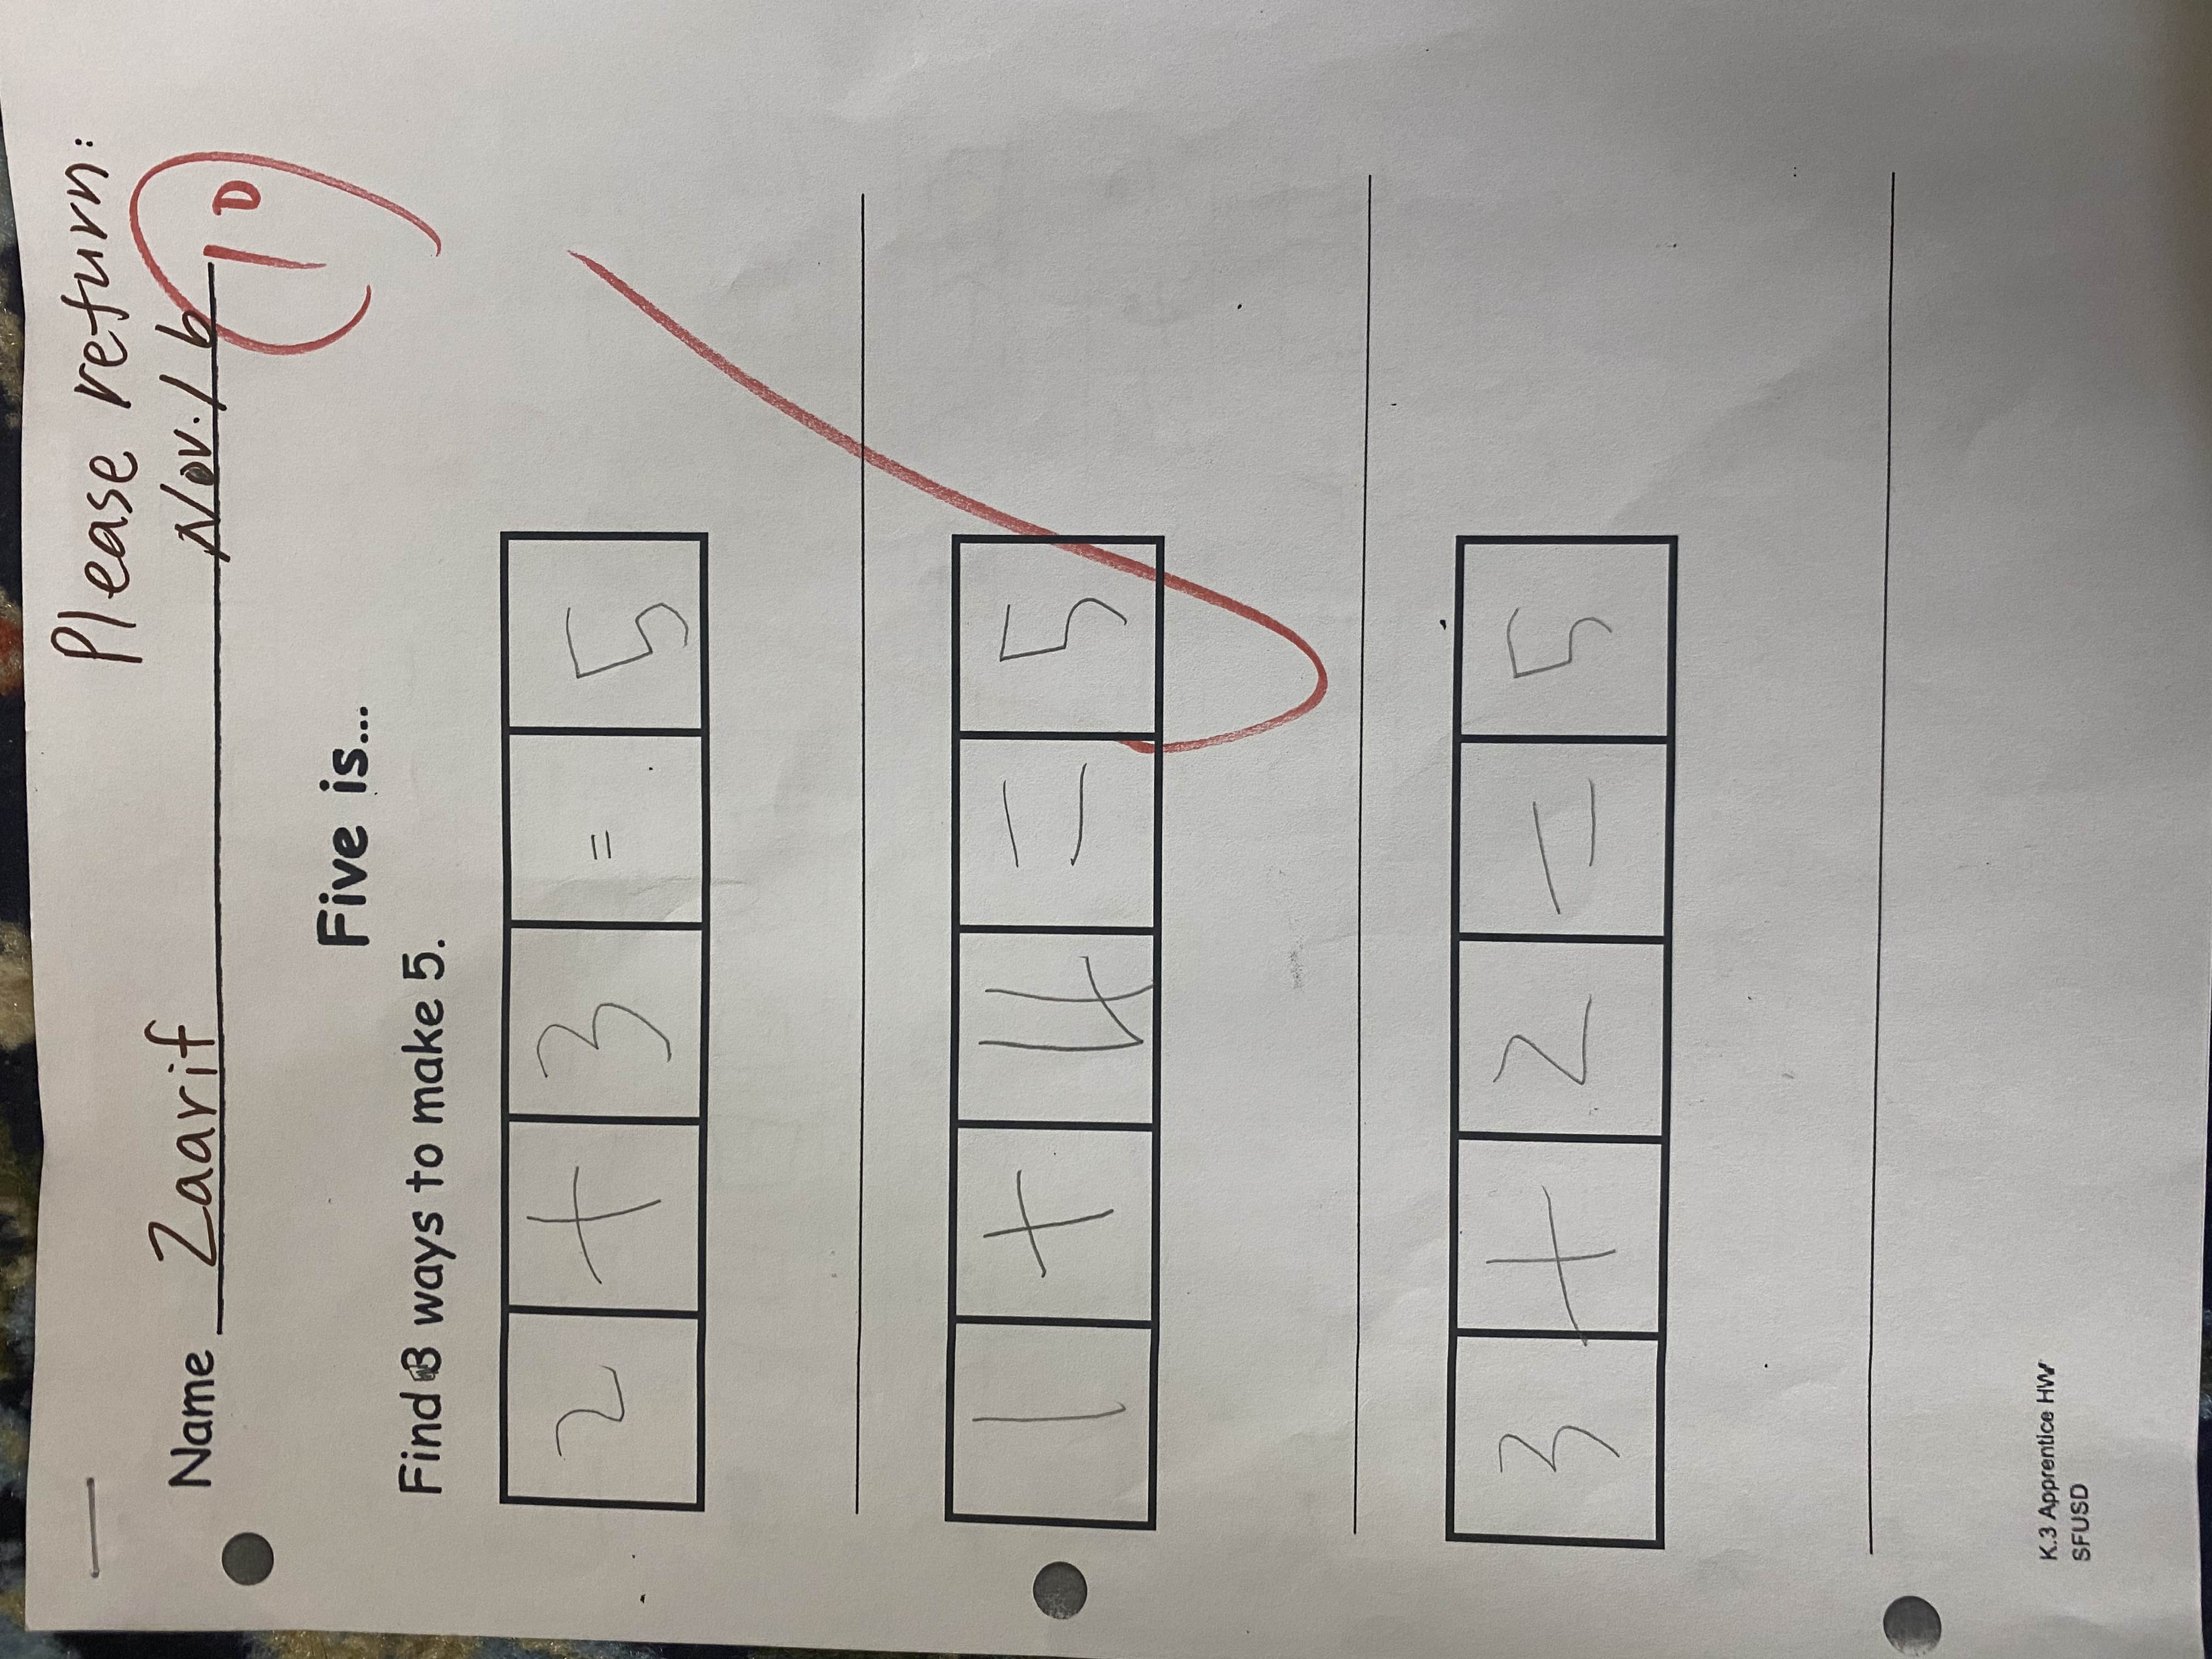 Please return:
Name Zaarif Nov. 16
10
Five is...
Find 3 ways to make 5.
2 + 3 = 5
1 + 4 = 5
3 + 2 = 5
K.3 Apprentice HW
SFUSD